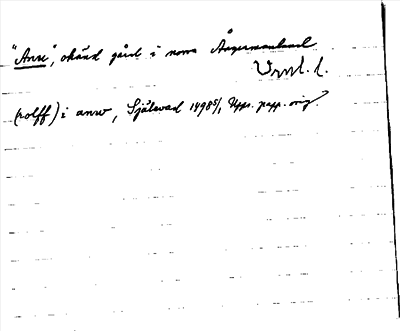 "Anre", okänd gård i norra Ångermanland
(rolff) i anrw, Själevad 1498 5/1, Upps. papp. orig.